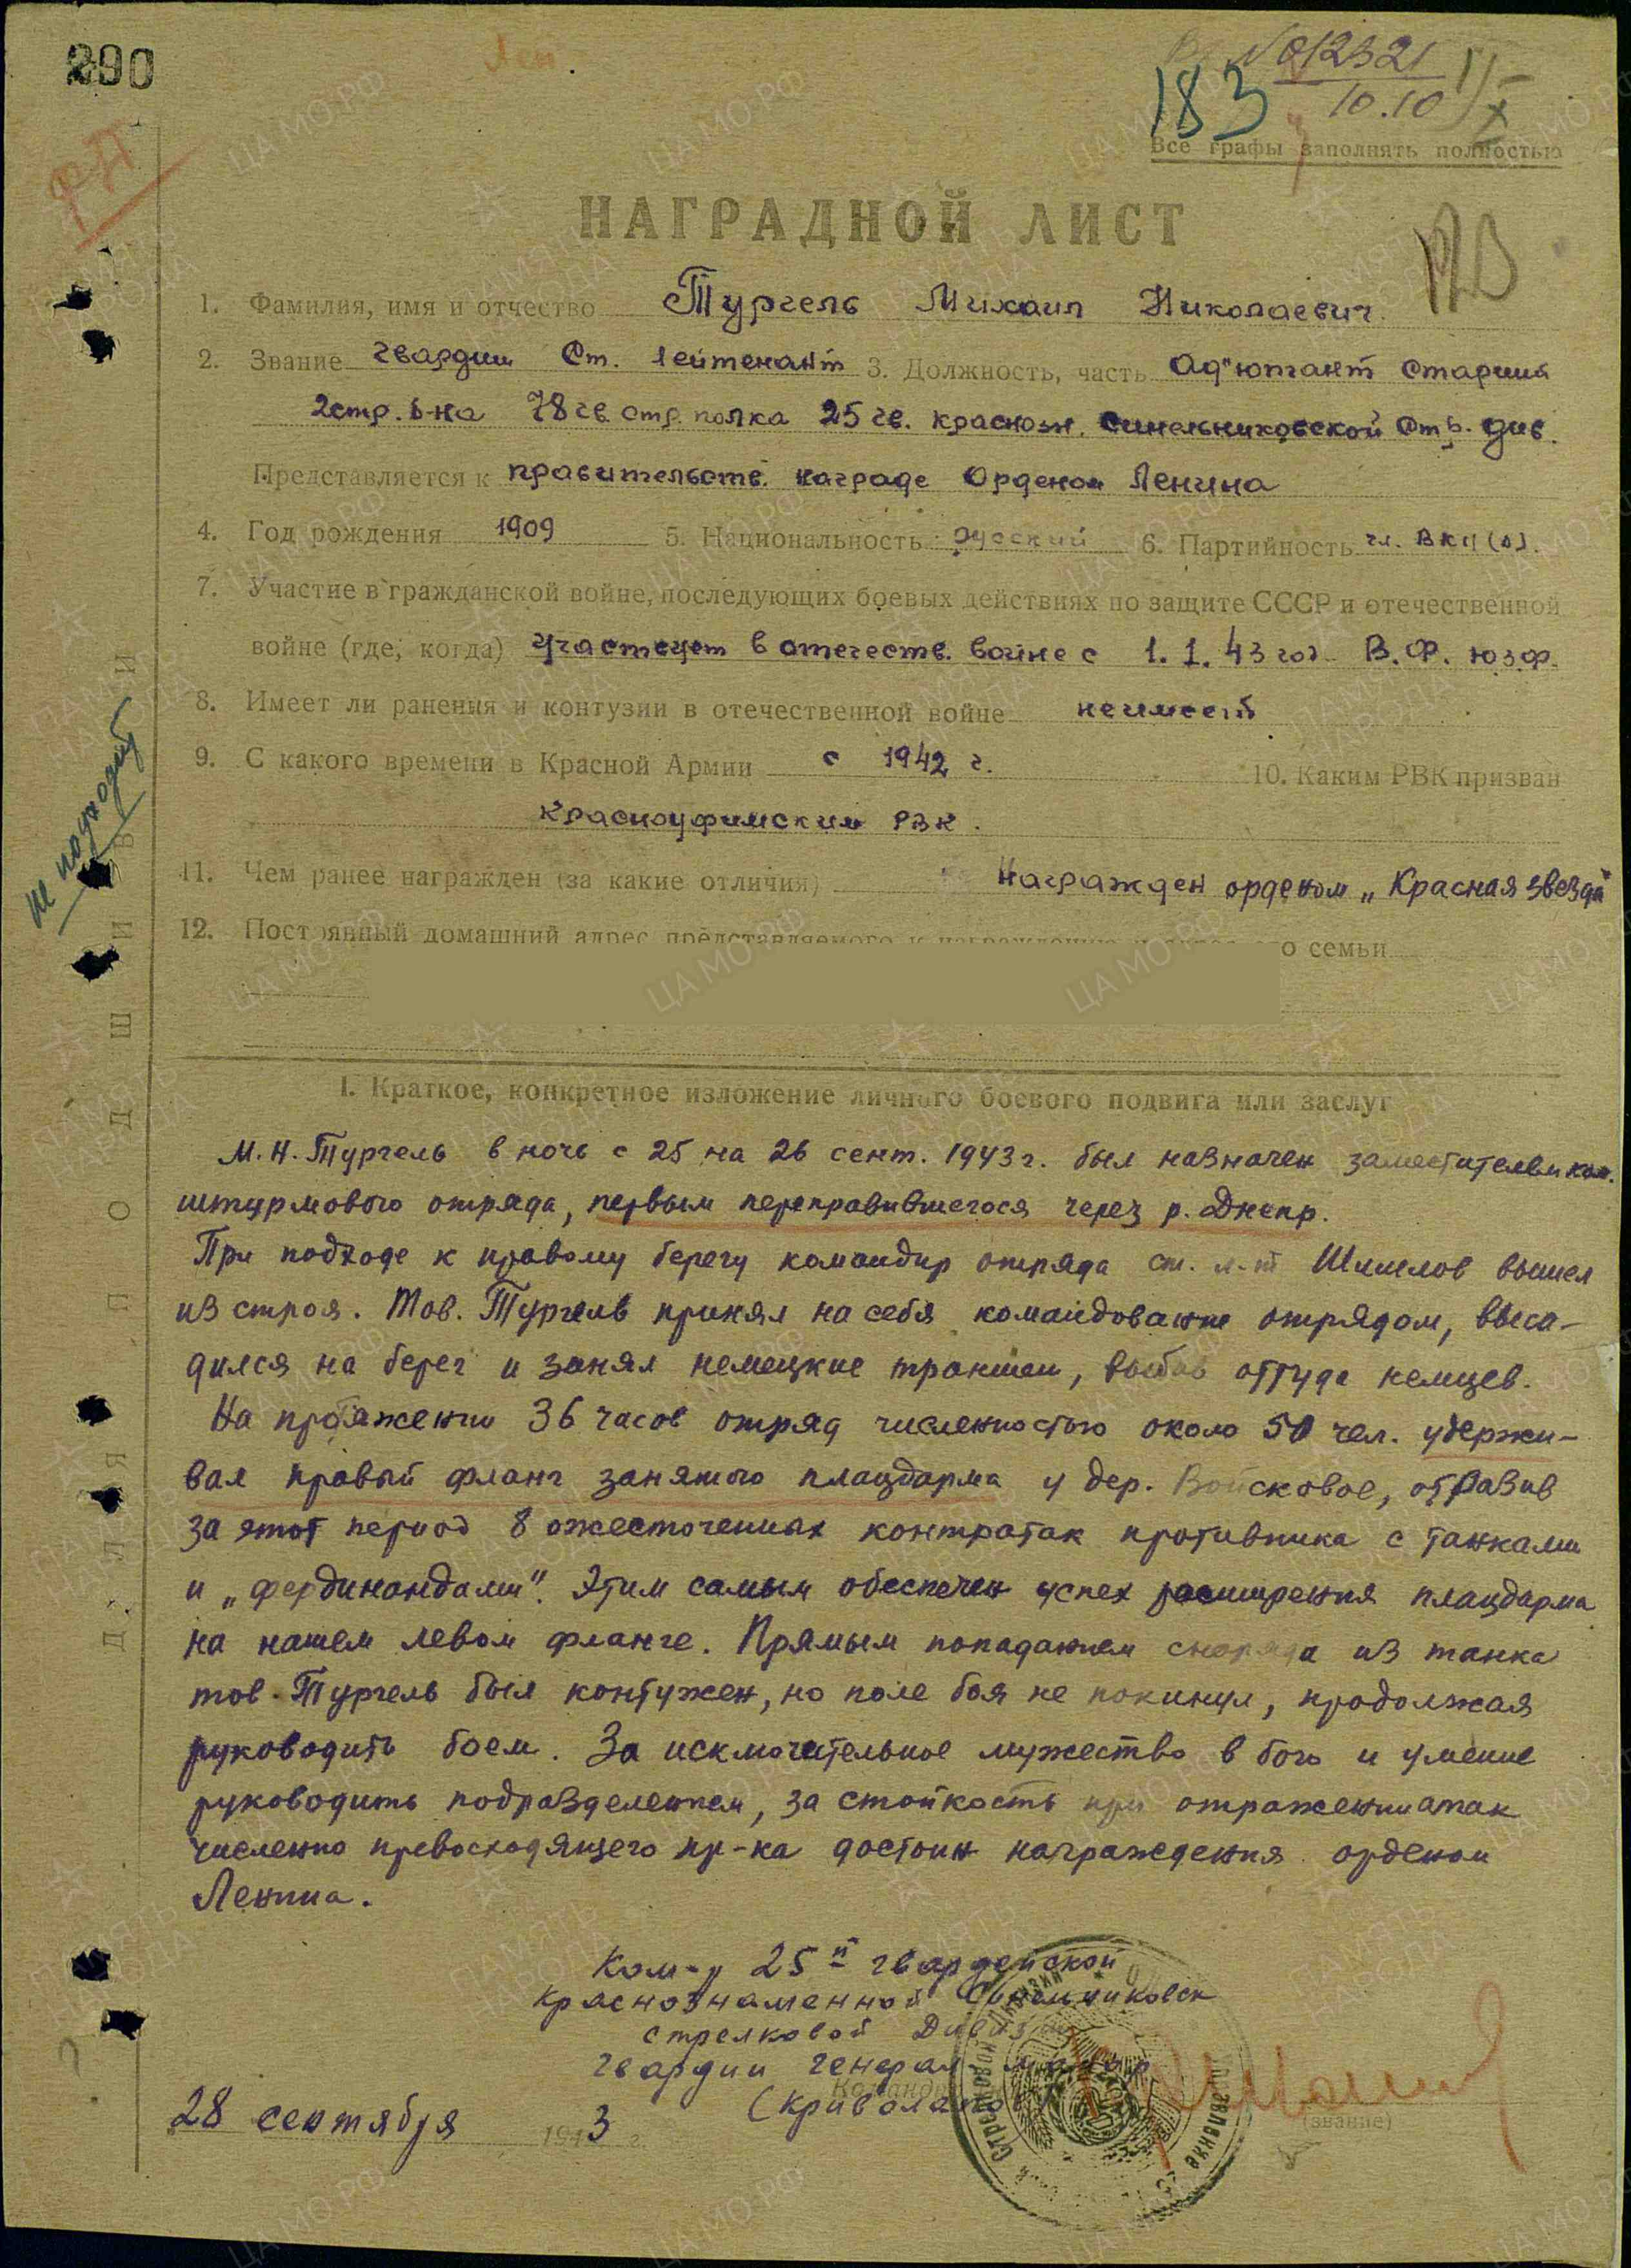 290
№ 012321
10.10
183
Все графы заполнять полностью
НАГРАДНОЙ ЛИСТ
1. Фамилия, имя и отчество Тургель Михаил Николаевич.
2. Звание гвардии Ст. лейтенант 3. Должность, часть Ад"ютант старший
2стр. б-на 78 гв. стр. полка 25 гв. краснозн. Синельниковской Стр. див.
Представляется к правительств. награде Орденом Ленина
4. Год рождения 1909 5. Национальность русский 6. Партийность чл. ВКП(б).
7. Участие в гражданской войне, последующих боевых действиях по защите СССР и отечественной
войне (где, когда) участвует в отечеств. войне с 1.1.43 год В.Ф. Ю.З.Ф.
8. Имеет ли ранения и контузии в отечественной войне не имеет
9. С какого времени в Красной Армии с 1942 г. 10. Каким РВК призван
Красноуфимским РВК.
11. Чем ранее награжден (за какие отличия) Награжден орденом „Красная звезда"
12. Постоянный домашний адрес представляемого к награждению и адрес его семьи
I. Краткое, конкретное изложение личного боевого подвига или заслуг
М.Н. Тургель в ночь с 25 на 26 сент. 1943г. был назначен заместителем ком.
штурмового отряда, первым переправившегося через р. Днепр.
При подходе к правому берегу командир отряда ст. л-т Шишлов вышел
из строя. Тов. Тургель принял на себя командование отрядом, выса-
дился на берег и занял немецкие траншеи, выбив оттуда немцев.
На протяжении 36 часов отряд численностью около 50 чел. удержи-
вал правый фланг занятого плацдарма у дер. Войсковое, отразив
за этот период 8 ожесточенных контратак противника с танками
и „фердинандами". Этим самым обеспечен успех расширения плацдарма
на нашем левом фланге. Прямым попаданием снаряда из танка
тов. Тургель был контужен, но поле боя не покинул, продолжая
руководить боем. За исключительное мужество в бою и умение
руководить подразделением, за стойкость при отражении атак
численно превосходящего пр-ка достоин награждения орденом
Ленина.
Ком-р 25й гвардейской
Краснознаменной Синельниковск
стрелковой Дивизии
гвардии генерал майор
(Криволапов)
(звание)
28 сентября 1943 г.
не подходит
Для подшивки